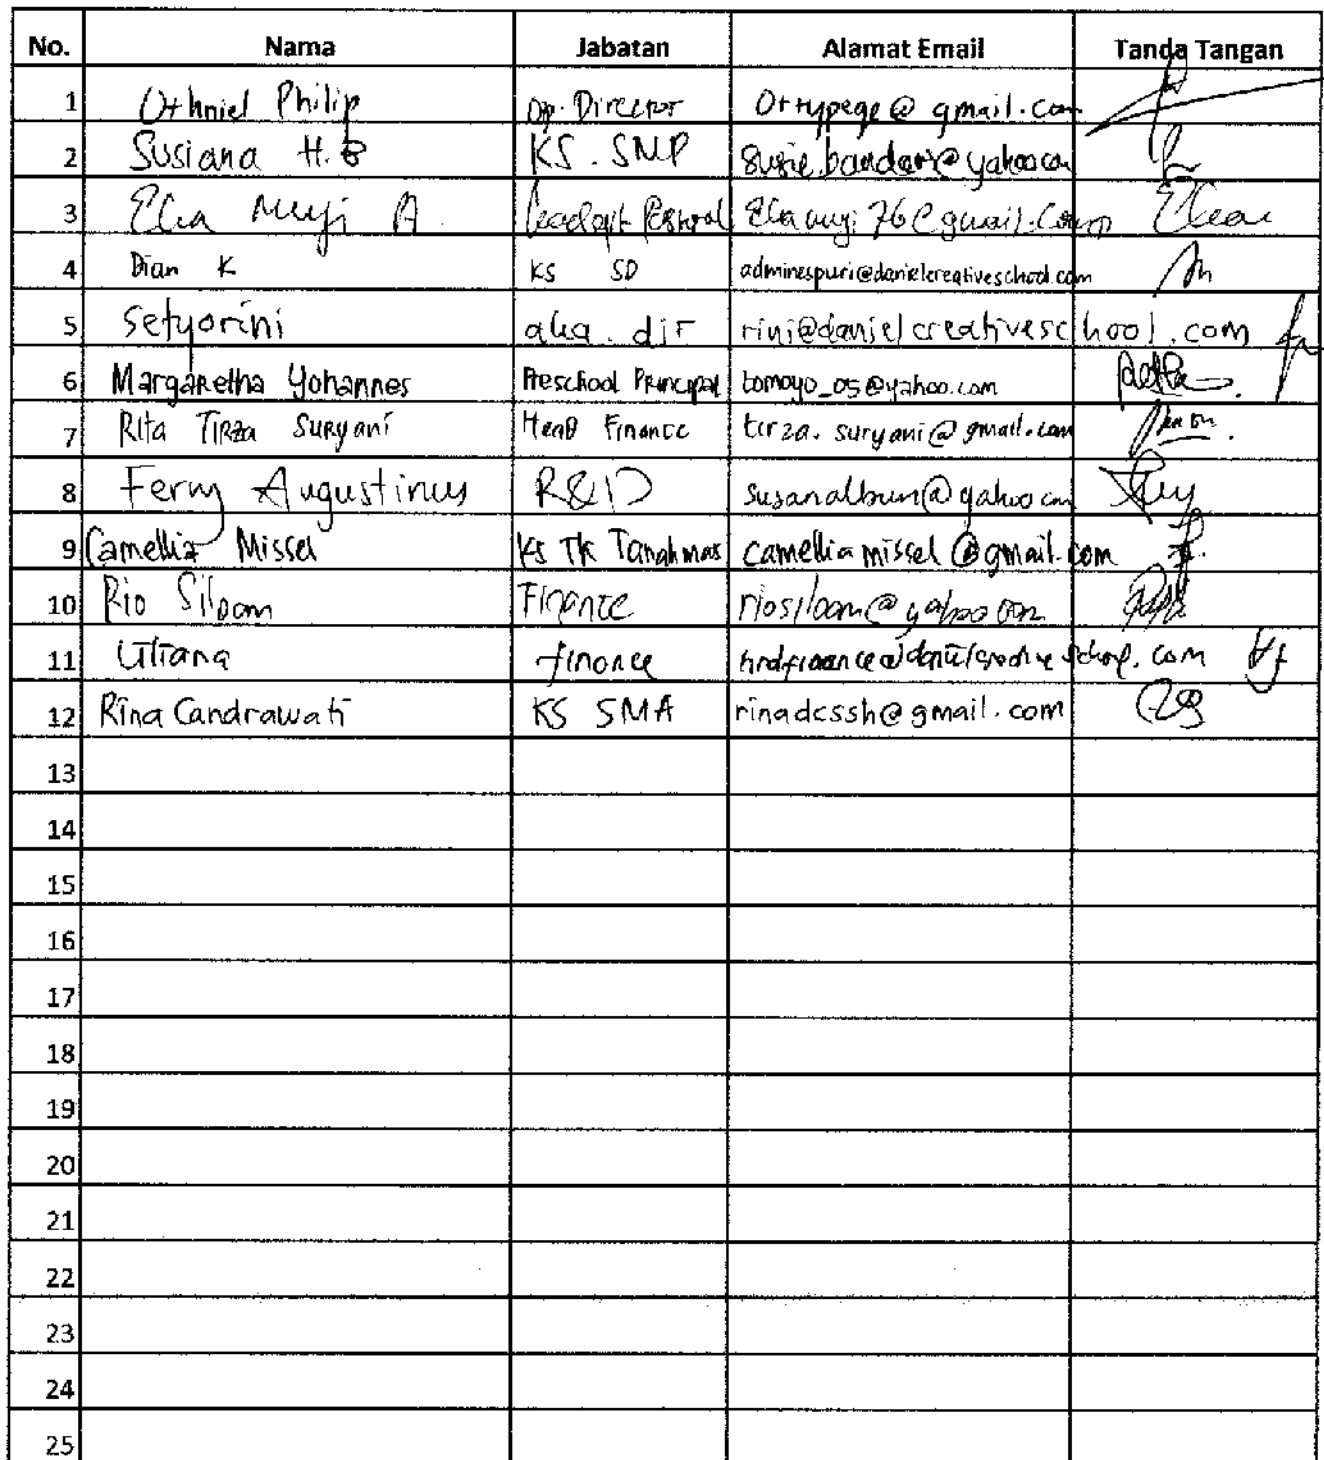 No. Nama Jabatan Alamat Email Tanda Tangan
1 Othniel Philip Op. Director Ottypege@gmail.com
2 Susiana H. B KS. SMP susie.bandari@yahoo.com
3 Elia Muji A. Elia muji76@gmail.com
4 Dian K KS SD adminespuri@danielcreativeschool.com
5 Setyorini aka. dir rini@danielcreativeschool.com
6 Margaretha Yohannes Preschool Principal tomoyo_05@yahoo.com
7 Rita Tirza Suryani Head Finance tirza.suryani@gmail.com
8 Ferry Augustinus R&D susanalbum@yahoo.com
9 Camellia Missel KS TK Tanahmas camelliamissel@gmail.com
10 Rio Siloam Finance riosiloam@yahoo.com
11 finance
12 Rina Candrawati KS SMA rinadcssh@gmail.com
13
14
15
16
17
18
19
20
21
22
23
24
25